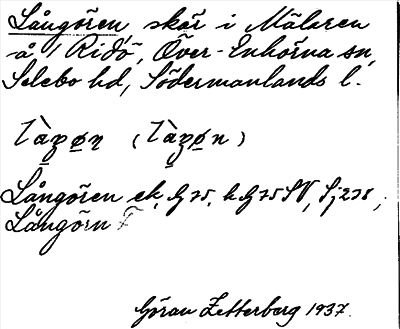 Långören, skär i Mälaren
å Ridö, Över-Enhörna sn,
Selebo hd, Södermanlands l.
Långören ek. G 75, k G 75 SV, Sj 238;
Långörn F
Göran Zetterberg 1937.